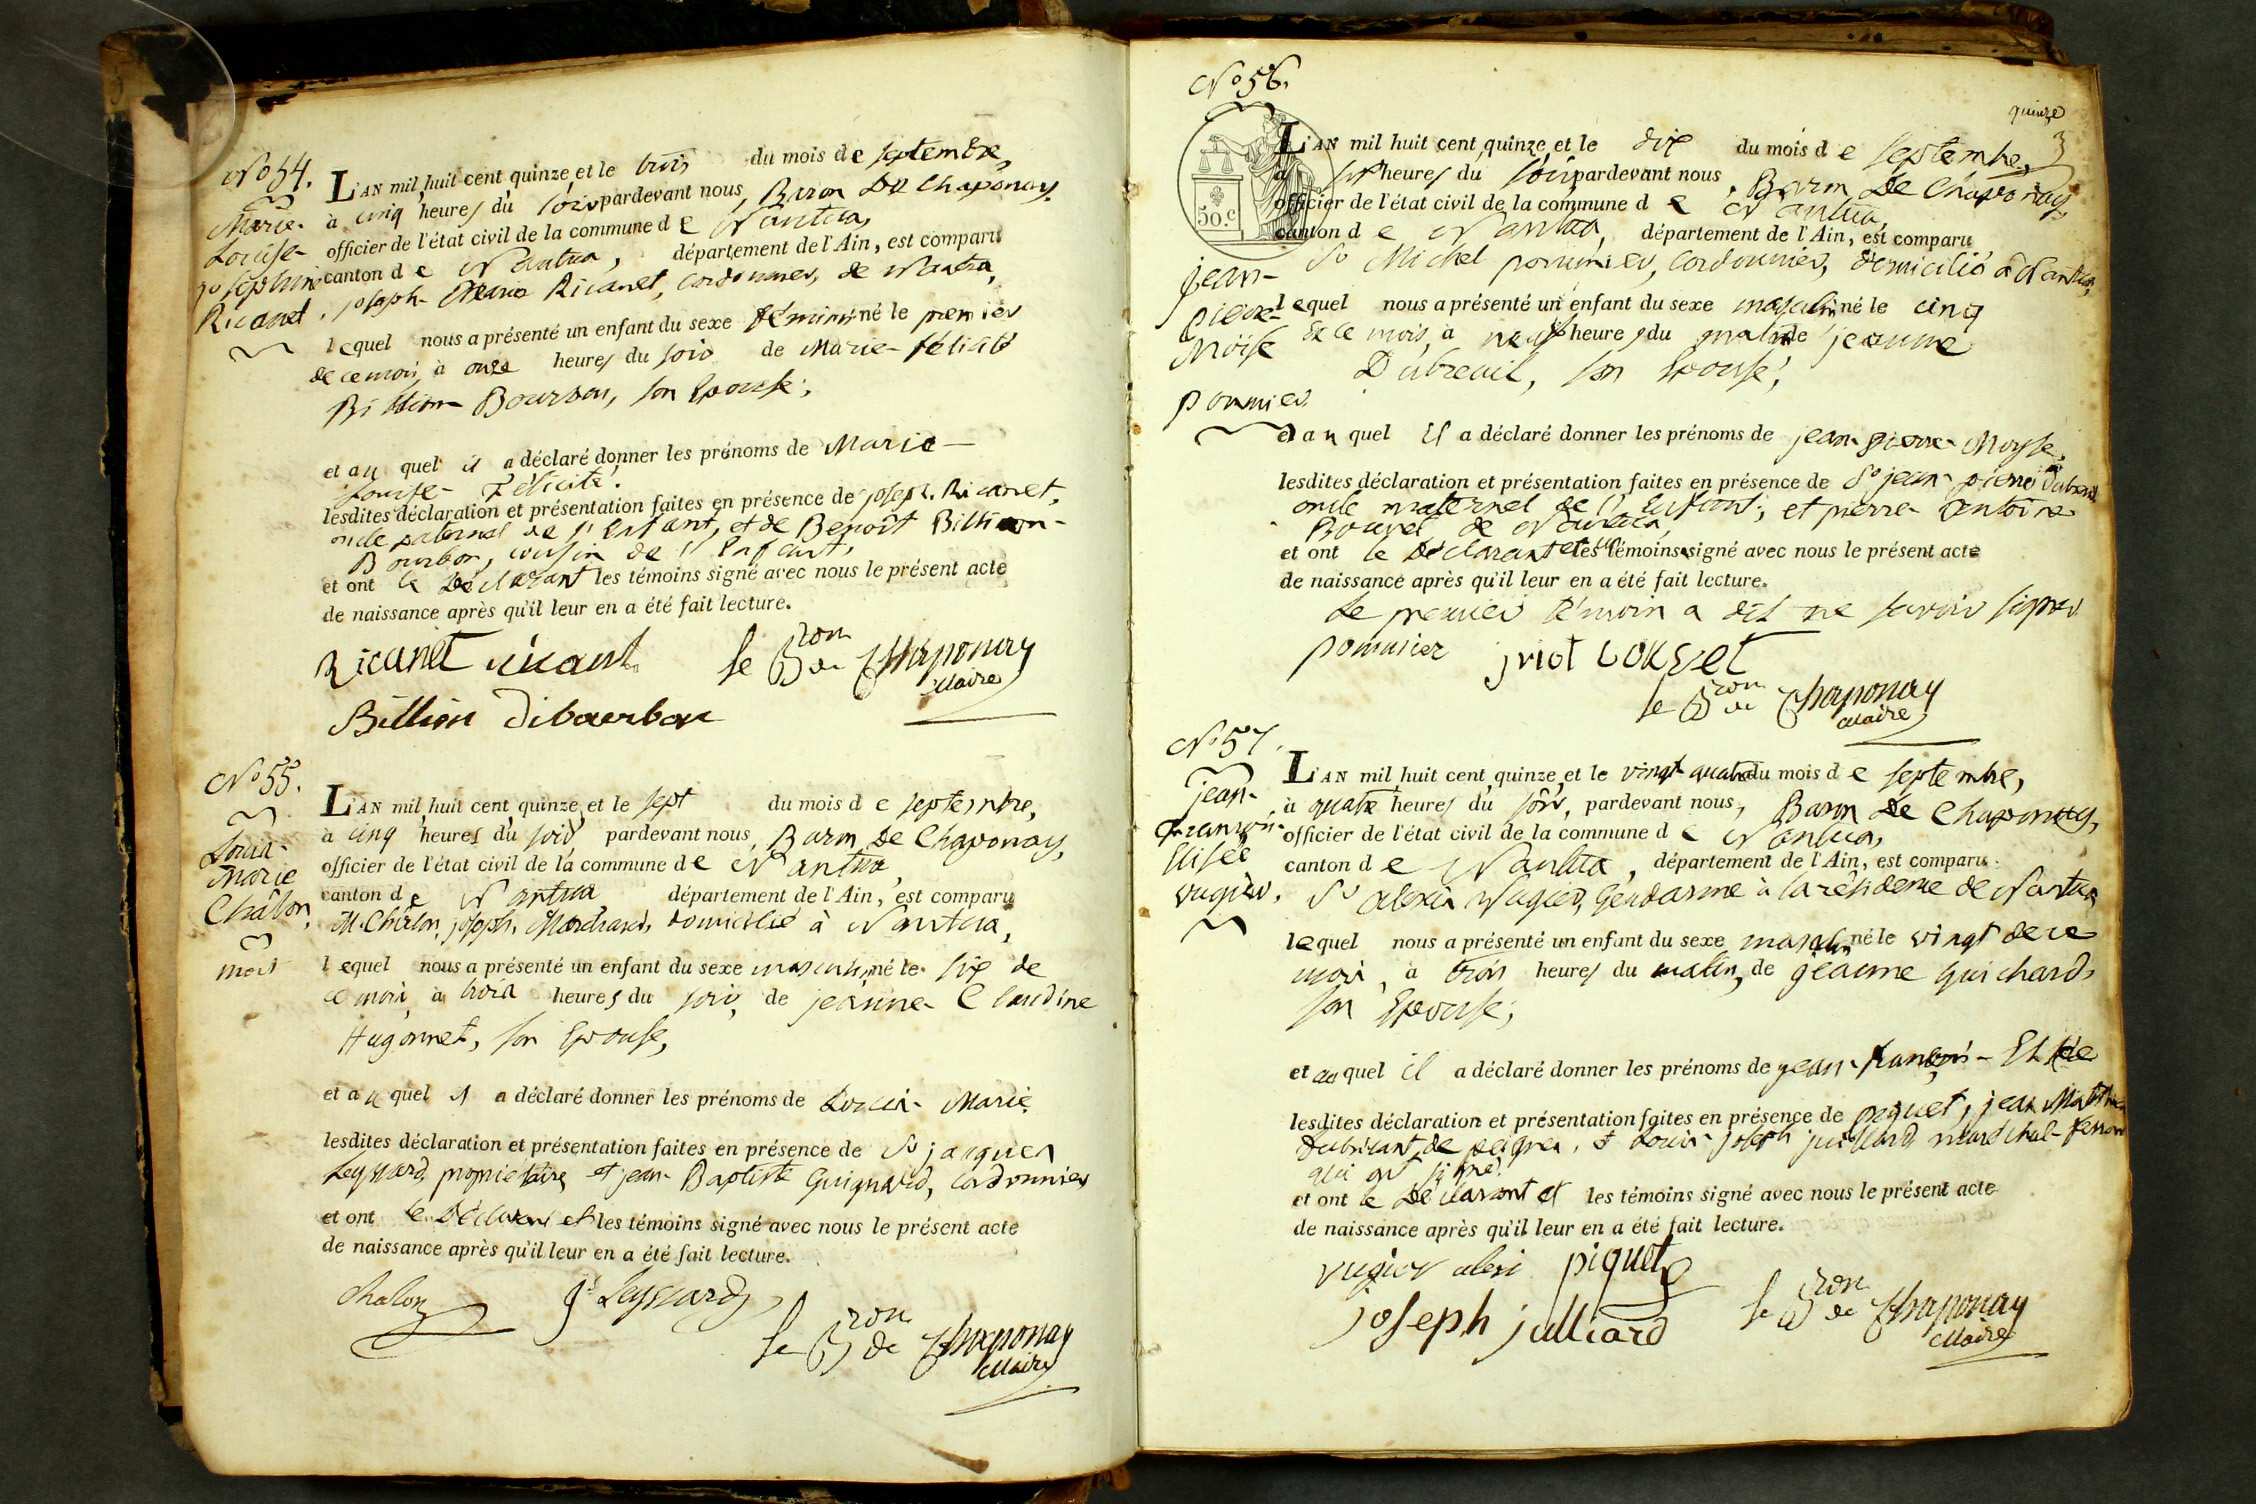 No 54.
Marie-
Louise-
josephine
Ricanet.
L'AN mil huit cent quinze et le trois du mois de septembre,
à cinq heures du soir pardevant nous, Baron De Chaponay,
officier de l'état civil de la commune de Nantua,
canton de Nantua, département de l'Ain, est comparu
joseph Ricanet, cordonnier, de Nantua,
lequel nous a présenté un enfant du sexe féminin né le premier
de ce mois, à onze heures du soir de Marie-félicité
Billion Bourbon, son Epouse;
et au quel il a déclaré donner les prénoms de Marie-
Louise- félicité.
lesdites déclaration et présentation faites en présence de joseph Ricanet,
oncle paternel de l'Enfant, et de Benoît Billion-
Bourbon, cousin de l'Enfant,
et ont le Déclarant les témoins signé avec nous le présent acte
de naissance après qu'il leur en a été fait lecture.
Ricanet ricanet le Bron de Chaponay
Maire
Billion dibourbon
No 55.
Louis-
Marie
Châlon.
mort
L'AN mil huit cent quinze et le sept du mois de septembre,
à cinq heures du soir, pardevant nous, Baron De Chaponay,
officier de l'état civil de la commune de Nantua,
canton de Nantua département de l'Ain, est comparu
M. Châlon, joseph, Marchand, domicilié à Nantua,
lequel nous a présenté un enfant du sexe masculin né le six de
ce mois, à trois heures du soir, de jeanne-Claudine
Hugonnet, son Epouse,
et au quel il a déclaré donner les prénoms de Louis- Marie.
lesdites déclaration et présentation faites en présence de Sr jacques
Leyssard, propriétaire, et jean-Baptiste Guignard, Cordonnier
et ont le Déclarant et les témoins signé avec nous le présent acte
de naissance après qu'il leur en a été fait lecture.
chalon Jes Leyssard
le Bron de Chaponay
Maire
No 56.
quinze
50. c
jean-
pierre-
Moïse
pommier
L'AN mil huit cent quinze et le dix du mois de septembre,
à sept heures du soir pardevant nous, Baron De Chaponay,
officier de l'état civil de la commune de Nantua,
canton de Nantua, département de l'Ain, est comparu
Sr Michel pommier, cordonnier, domicilié à Nantua,
lequel nous a présenté un enfant du sexe masculin né le cinq
de ce mois, à neuf heures du matin de jeanne
Dubreuil, son Epouse;
et au quel il a déclaré donner les prénoms de jean-pierre-Moyse,
lesdites déclaration et présentation faites en présence de Sr jean-pierre Dubreuil
oncle maternel de l'Enfant; et pierre-antoine
de Nantua,
et ont le Déclarant et les témoins signé avec nous le présent acte
de naissance après qu'il leur en a été fait lecture.
Le premier témoin a dit ne savoir signer
pommier
le Bron de Chaponay
Maire
No 57.
jean-
françois-
Elisée
vugier.
L'AN mil huit cent quinze et le vingt-quatre du mois de septembre,
à quatre heures du soir, pardevant nous, Baron De Chaponay,
officier de l'état civil de la commune de Nantua,
canton de Nantua, département de l'Ain, est comparu
Sr alexis Vugier, Gendarme à la résidence de Nantua
lequel nous a présenté un enfant du sexe masculin né le vingt de ce
mois, à trois heures du matin, de jeanne Guichard,
son Epouse;
et au quel il a déclaré donner les prénoms de jean-françois-Elisée
lesdites déclaration et présentation faites en présence de piquet, jean Matthieu
fabricant de peignes, & Louis-joseph juilliard maréchal-ferrant
qui ont signé.
et ont le Déclarant et les témoins signé avec nous le présent acte
de naissance après qu'il leur en a été fait lecture.
vugier alexi piquet
joseph julliard le Bron de Chaponay
Maire